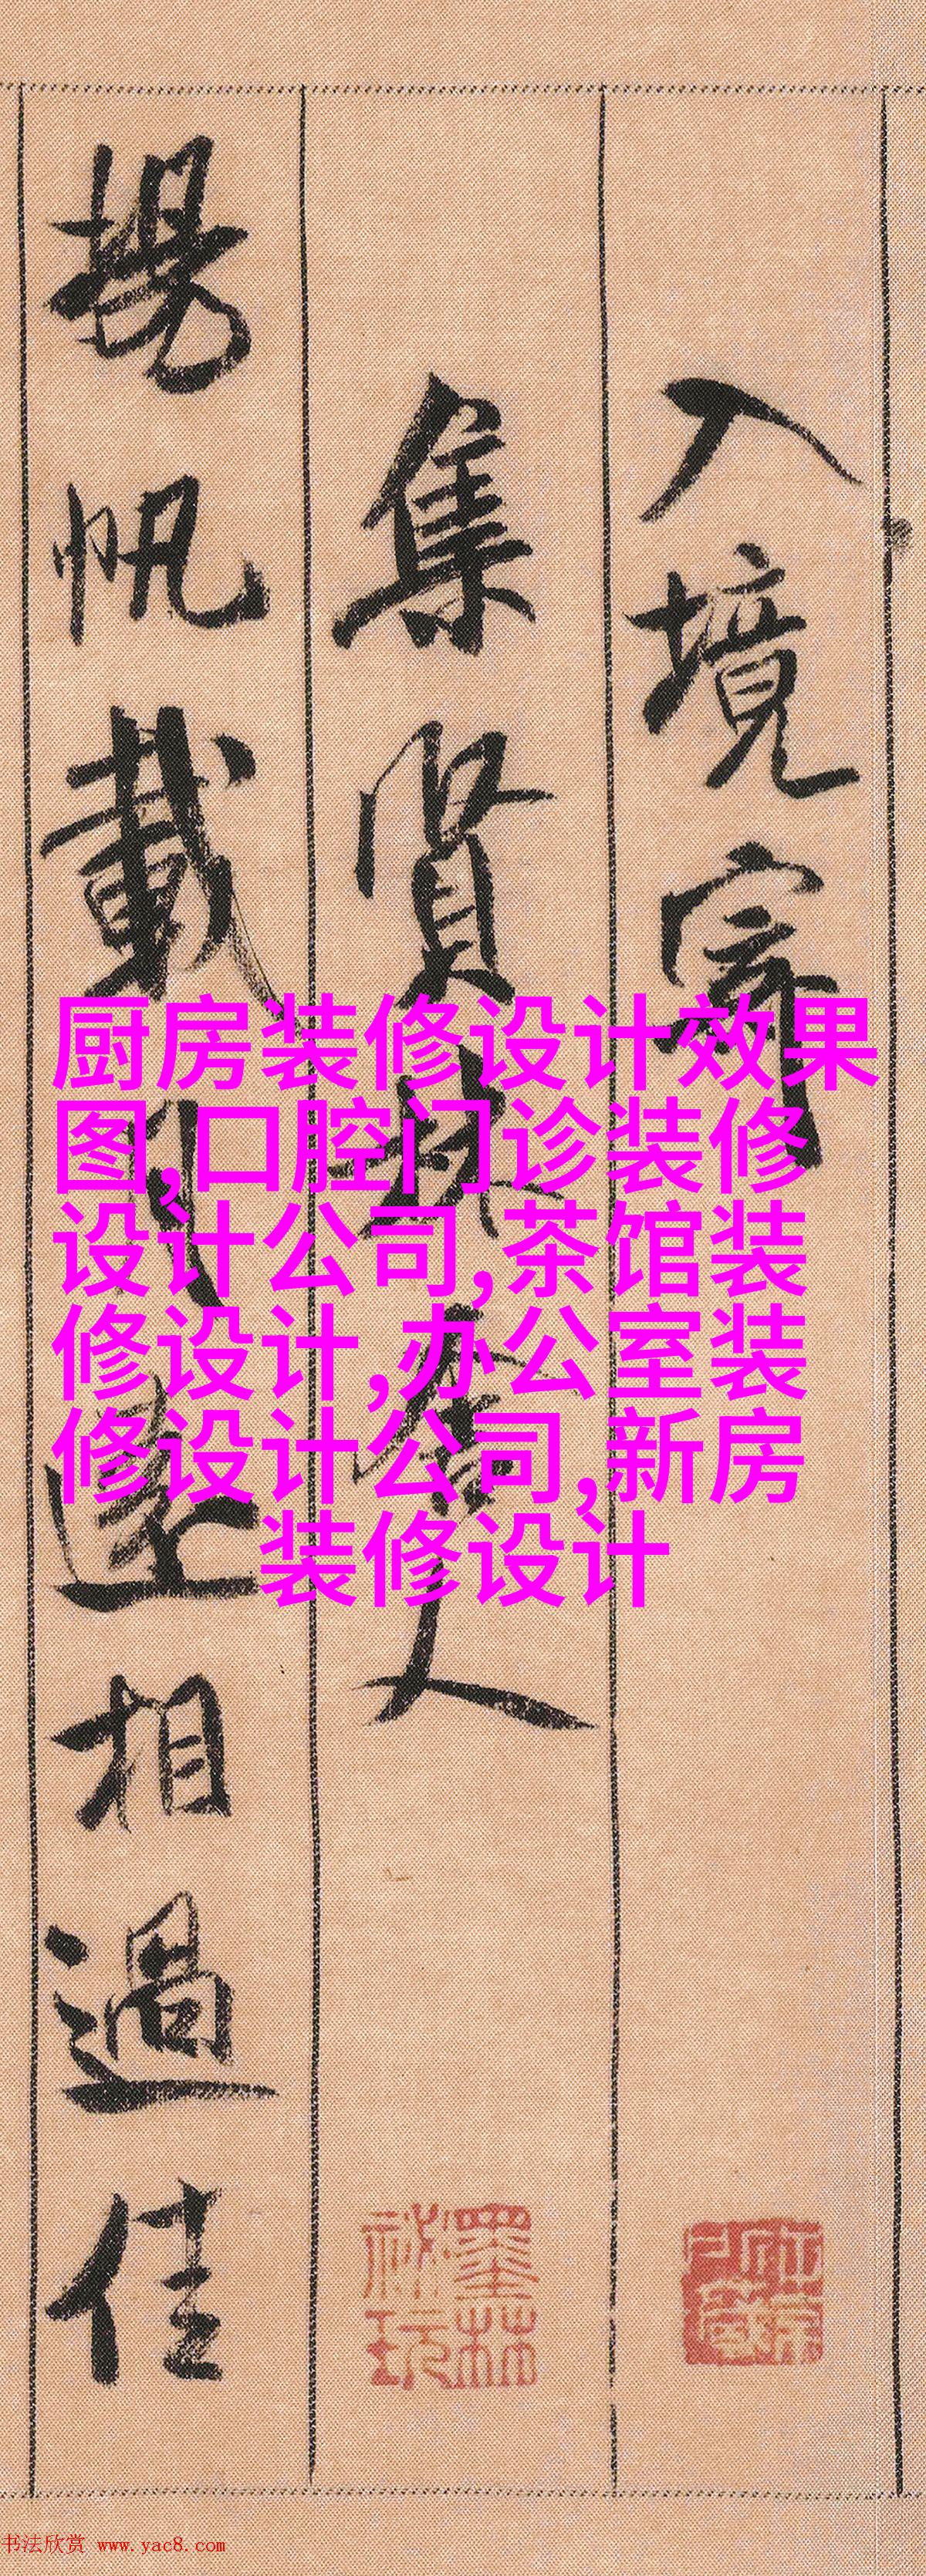 入境寄
集賢林舍人
揚帆載月遠相過佳
厨房装修设计效果
图,口腔门诊装修
设计公司,茶馆装
修设计,办公室装
修设计公司,新房
装修设计
墨林
祕玩
书法欣赏 www.yac8.com